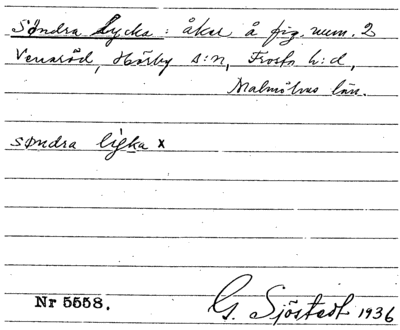 Söndra Lycka: åker å fig. num. 2
Venaröd, Hörby s:n, Frosta h:d,
Malmöhus län.
söndra lyka x
Nr 5558.
G. Sjöstedt 1936